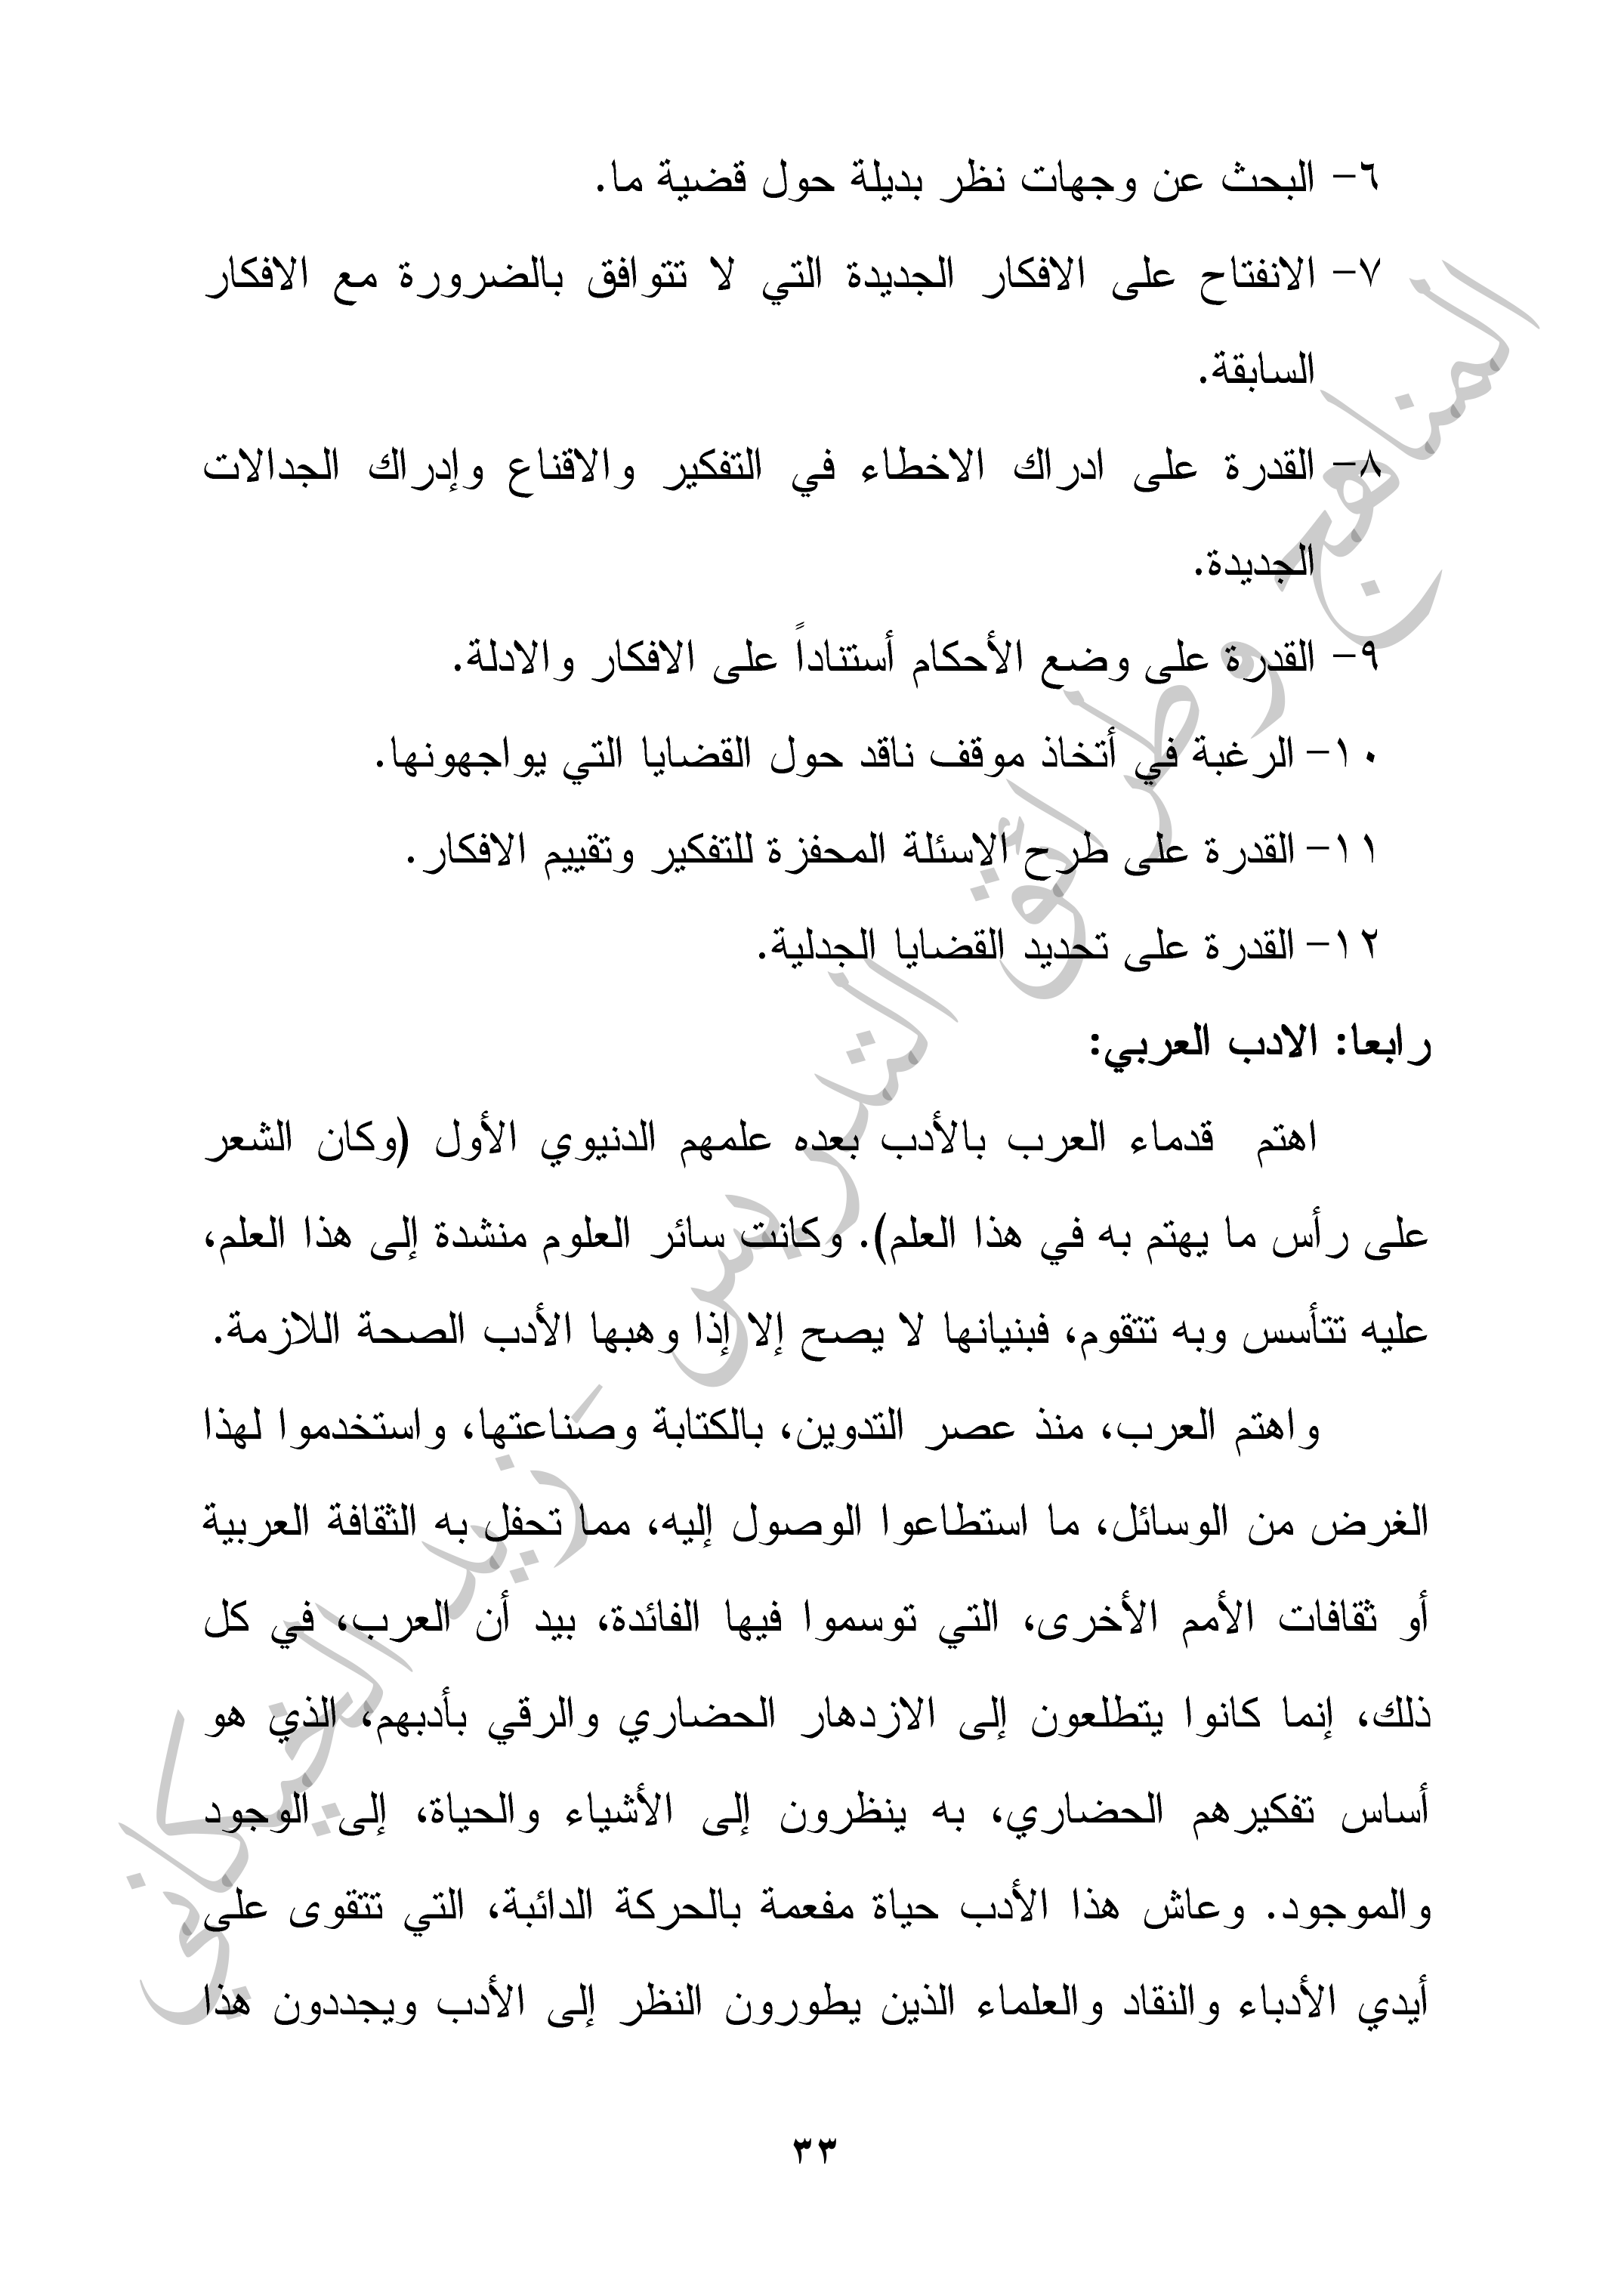 ٦- البحث عن وجهات نظر بديلة حول قضية ما.
٧- الانفتاح على الافكار الجديدة التي لا تتوافق بالضرورة مع الافكار
السابقة.
٨- القدرة على ادراك الاخطاء في التفكير والاقناع وإدراك الجدالات
الجديدة.
٩- القدرة على وضع الأحكام أستناداً على الافكار والادلة.
١٠- الرغبة في أتخاذ موقف ناقد حول القضايا التي يواجهونها.
١١- القدرة على طرح الاسئلة المحفزة للتفكير وتقييم الافكار.
١٢- القدرة على تحديد القضايا الجدلية.
رابعا: الادب العربي:
اهتم قدماء العرب بالأدب بعده علمهم الدنيوي الأول (وكان الشعر
على رأس ما يهتم به في هذا العلم). وكانت سائر العلوم منشدة إلى هذا العلم،
عليه تتأسس وبه تتقوم، فبنيانها لا يصح إلا إذا وهبها الأدب الصحة اللازمة.
واهتم العرب، منذ عصر التدوين، بالكتابة وصناعتها، واستخدموا لهذا
الغرض من الوسائل، ما استطاعوا الوصول إليه، مما تحفل به الثقافة العربية
أو ثقافات الأمم الأخرى، التي توسموا فيها الفائدة، بيد أن العرب، في كل
ذلك، إنما كانوا يتطلعون إلى الازدهار الحضاري والرقي بأدبهم، الذي هو
أساس تفكيرهم الحضاري، به ينظرون إلى الأشياء والحياة، إلى الوجود
والموجود. وعاش هذا الأدب حياة مفعمة بالحركة الدائبة، التي تتقوى على
أيدي الأدباء والنقاد والعلماء الذين يطورون النظر إلى الأدب ويجددون هذا
٣٣
المناهج وطرائق التدريس - زيد الخيكاني